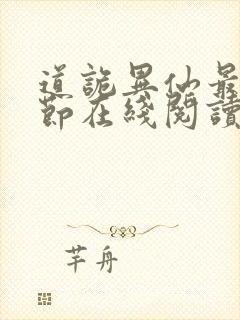 道詭異仙最
節在綫閱讀
芊舟